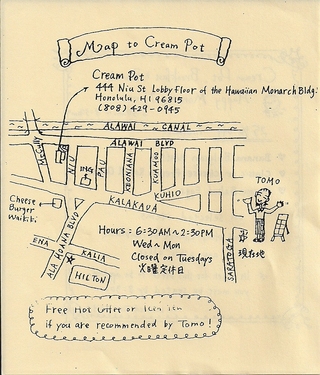 Map to Cream Pot
Cream Pot
444 Niu St Lobby floor of the Hawaiian Monarch Bldg.
Honolulu, HI 96815
(808) 429-0945
ALAWAI CANAL
ALAWAI BLVD
McCully
NIU
ING
PAU
KEONIANA
KUAMOO
KUHIO
KALAKAUA
TOMO
Cheese
Burger
Waikiki
ALA MOANA BLVD
ENA
KALIA
HILTON
Hours : 6:30AM~2:30PM
Wed ~ Mon
Closed on Tuesdays
火曜定休日
SARATOGA
現在地
Free Hot Coffee or Iced Tea
if you are recommended by Tomo!